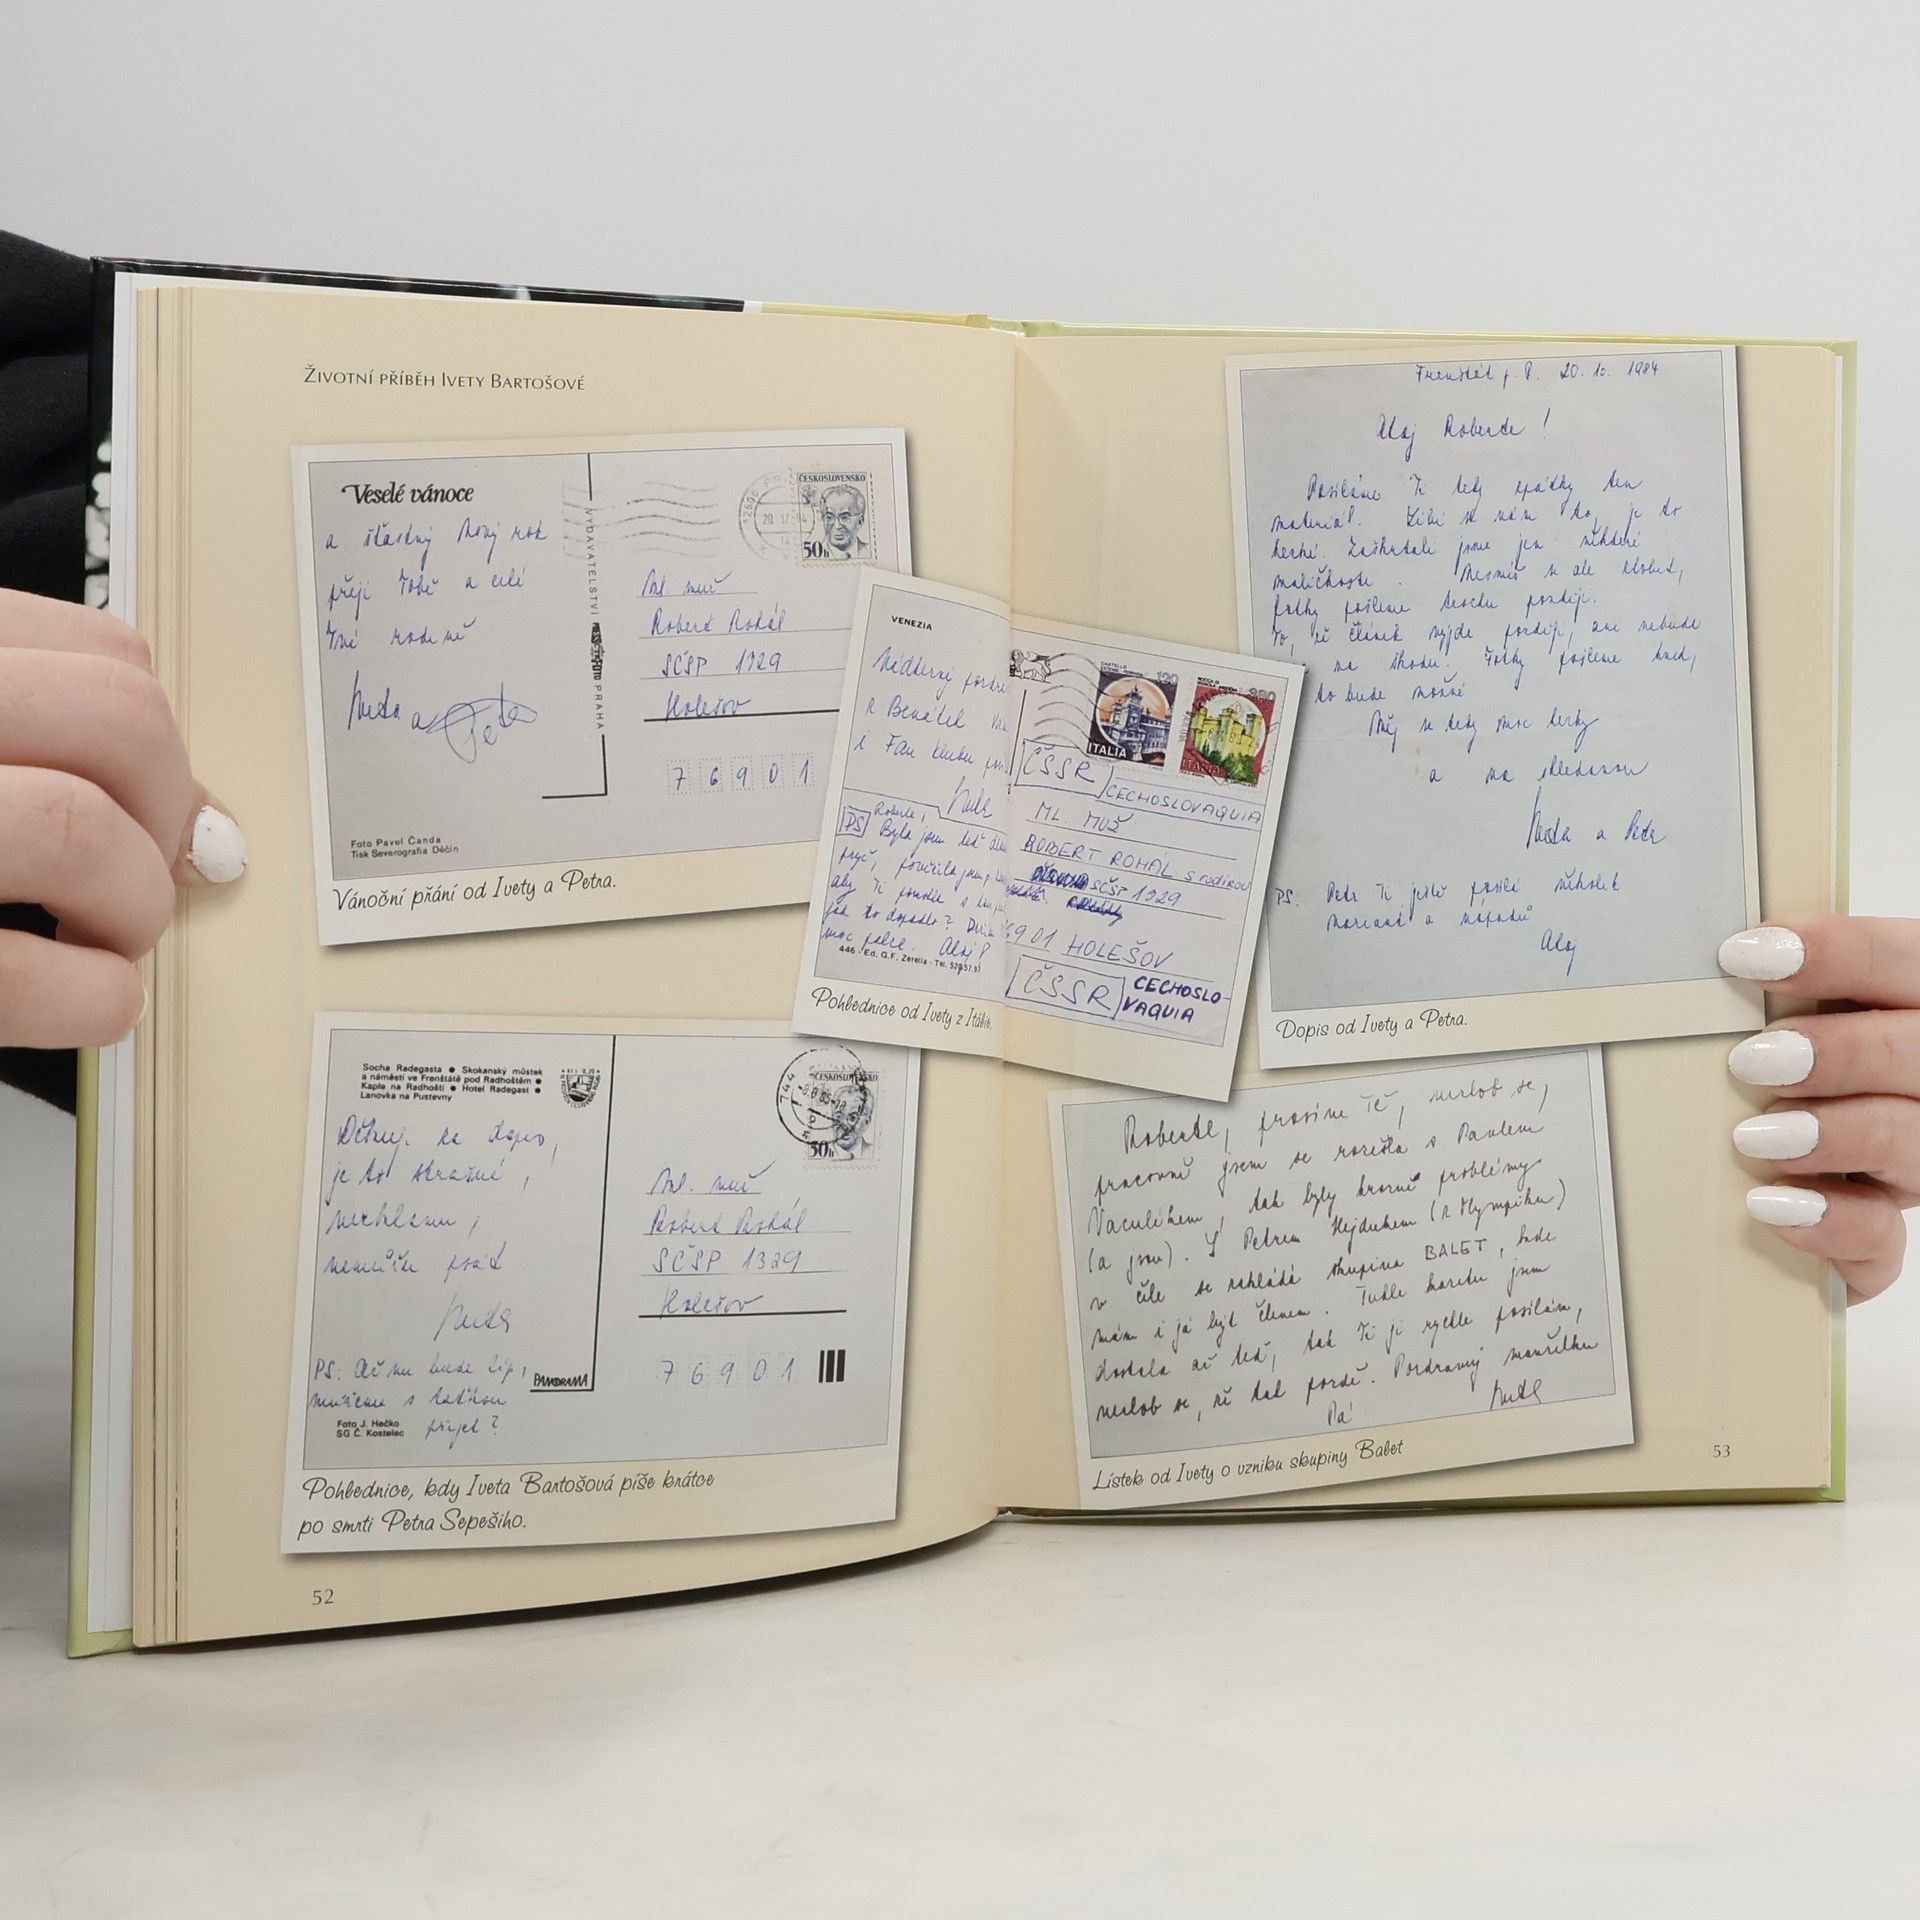 Životní příběh Ivety Bartošové
Veselé vánoce
a šťastný Nový rok
přejí Tobě a celé
Tvé rodině
Iveta a Petr
Foto Pavel Čanda
Tisk Severografia Děčín
VYDAVATELSTVÍ PRAHA
ČESKOSLOVENSKO
50h
Ml. muž
Robert Rohál
SČSP 1329
Holešov
7 6 9 0 1
Vánoční přání od Ivety a Petra.
Socha Radegasta ● Skokanský můstek
a náměstí ve Frenštátě pod Radhoštěm ●
Kaple na Radhošti ● Hotel Radegast ●
Lanovka na Pustevny
Děkuji za dopis,
je to strašné,
nechápu,
nemůžu psát
Iveta
PS: Až mi bude líp,
musíme s taťkou
přijet?
PANORAMA
Foto J. Hečko
SG Č. Kostelec
ČESKOSLOVENSKO
50h
Ml. muž
Robert Rohál
SČSP 1329
Holešov
7 6 9 0 1
Pohlednice, kdy Iveta Bartošová píše krátce
po smrti Petra Sepešiho.
52
VENEZIA
Nádherný
z Benátek
i Fan klubu
Iveta
PS Roberte,
Byla jsem teď
pryč,
aby Ti
jak to dopadlo?
moc palce. Ahoj!
446 - Ed. G.F. Zerella - Tel. 520.57.97
CASTELLO
120
ITALIA
380
ITALIA
ČSSR
CECHOSLOVAQUIA
ML. MUŽ
ROBERT ROHÁL s rodinou
SČSP 1329
6901 HOLEŠOV
ČSSR CECHOSLO-
VAQUIA
Pohlednice od Ivety z Itálie.
Frenštát p. R. 20. 10. 1984
Ahoj Roberte!
Posíláme Ti tedy zpátky ten
materiál. Líbí se nám to, je to
hezké. Zaškrtali jsme jen některé
maličkosti. Nesmíš se ale zlobit,
fotky pošleme trochu později.
To, že článek vyjde později, ani nebude
na škodu. Fotky pošleme hned,
to bude možné
Měj se tedy moc hezky
a na shledanou
Iveta a Petr
PS: Petr Ti ještě pošle několik
a nápadů
Ahoj
Dopis od Ivety a Petra.
Roberte, prosím Tě, nezlob se,
pracovně jsem se rozešla s Pavlem
Vaculíkem, tak byly hrozné problémy
(a jsou). S Petrem Hejdukem (z Olympiku)
v čele se zakládá skupina BALET, kde
mám i já být členem. Tuhle kazetu jsem
dostala až teď, tak Ti ji rychle posílám,
nezlob se, že tak pozdě. Pozdravuj manželku
Pa! Iveta
Lístek od Ivety o vzniku skupiny Balet
53